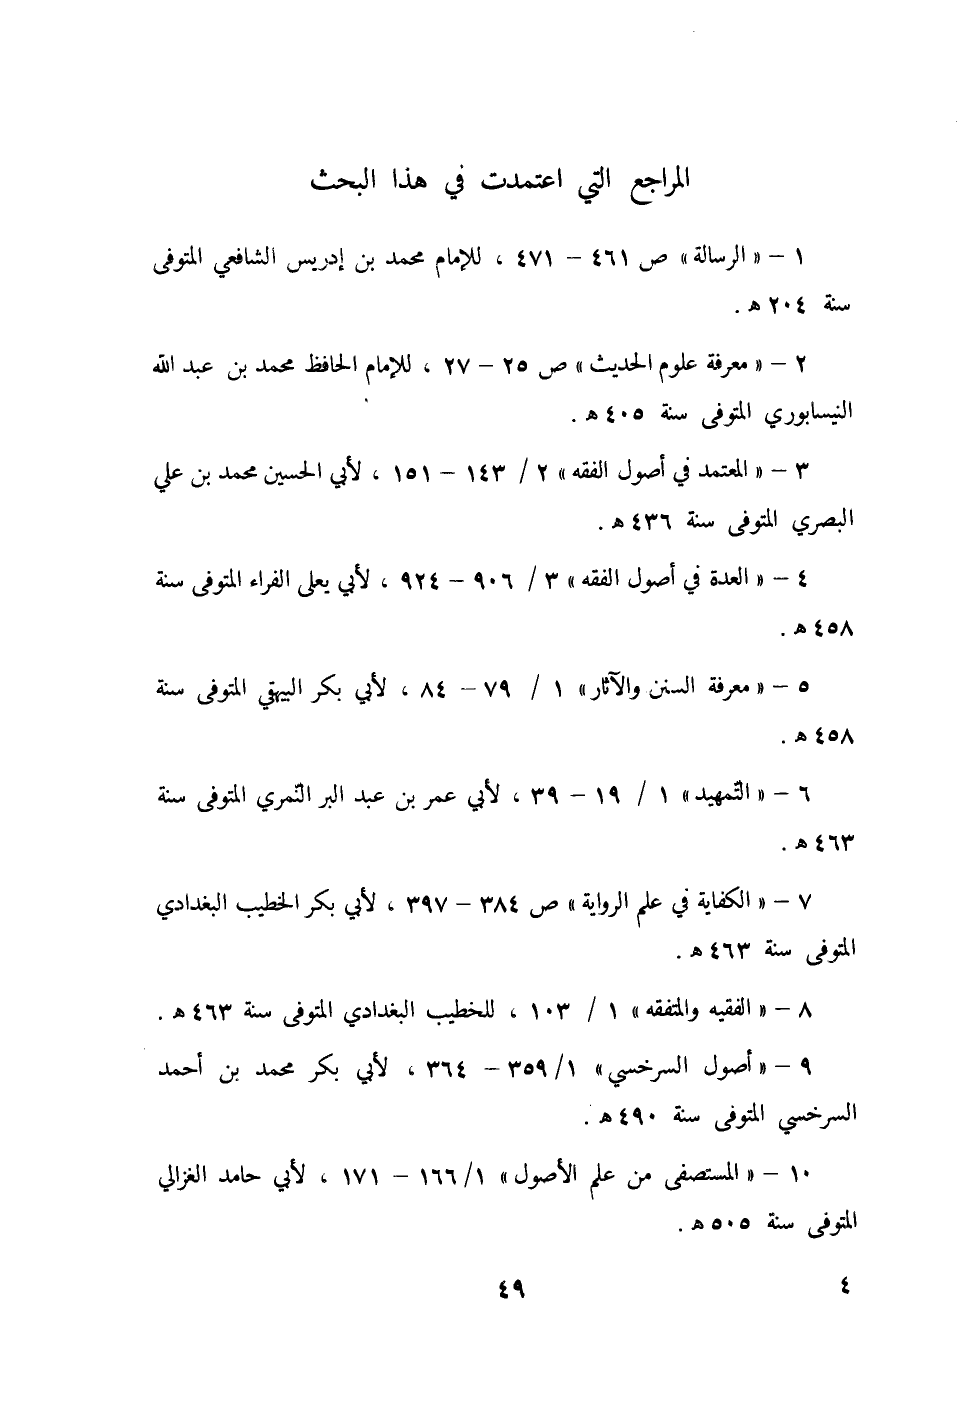 المراجع التي اعتمدت في هذا البحث
١ – « الرسالة » ص ٤٦١ – ٤٧١ ، للإمام محمد بن إدريس الشافعي المتوفى
سنة ٢٠٤ هـ .
٢ – « معرفة علوم الحديث » ص ٢٥ – ٢٧ ، للإمام الحافظ محمد بن عبد الله
النيسابوري المتوفى سنة ٤٠٥ هـ .
٣ – « المعتمد في أصول الفقه » ٢ / ١٤٣ – ١٥١ ، لأبي الحسين محمد بن علي
البصري المتوفى سنة ٤٣٦ هـ .
٤ – « العدة في أصول الفقه » ٣ / ٩٠٦ – ٩٢٤ ، لأبي يعلى الفراء المتوفى سنة
٤٥٨ هـ .
٥ – « معرفة السنن والآثار » ١ / ٧٩ – ٨٤ ، لأبي بكر البيهقي المتوفى سنة
٤٥٨ هـ .
٦ – « التّمهيد » ١ / ١٩ – ٣٩ ، لأبي عمر بن عبد البر النّمري المتوفى سنة
٤٦٣ هـ .
٧ – « الكفاية في علم الرواية » ص ٣٨٤ – ٣٩٧ ، لأبي بكر الخطيب البغدادي
المتوفى سنة ٤٦٣ هـ .
٨ – « الفقيه والمتفقه » ١ / ١٠٣ ، للخطيب البغدادي المتوفى سنة ٤٦٣ هـ .
٩ – « أصول السرخسي » ١/ ٣٥٩ – ٣٦٤ ، لأبي بكر محمد بن أحمد
السرخسي المتوفى سنة ٤٩٠ هـ .
١٠ – « المستصفى من علم الأصول » ١/ ١٦٦ – ١٧١ ، لأبي حامد الغزالي
المتوفى سنة ٥٠٥ هـ .
٤ ٤٩